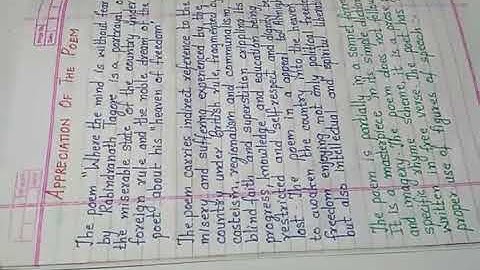 APPRECIATION OF THE POEM
The poem "Where the mind is without fear"
by Rabindranath Tagore is a portrayal of
the miserable state of the country under
foreign rule and the noble dream of the
poet about his "heaven of freedom"
The poem carries indirect reference to the
misery and suffering experienced by the
country under British rule, fragmented by
casteism, regionalism and communalism,
blind faith and superstition crippling its
progress, knowledge and education being
restricted and self-respect and dignity
lost. The poem is a appeal to Almighty
to awaken the country into the heaven of
freedom enjoying not only political freedom
but also intellectual and spiritual
The poem is partially in a sonnet form
It is a masterpiece in its simple diction
and imagery. The poem does not follow
specific rhyme scheme, it is
written in free verse. The poet has
proper use of figures of speech